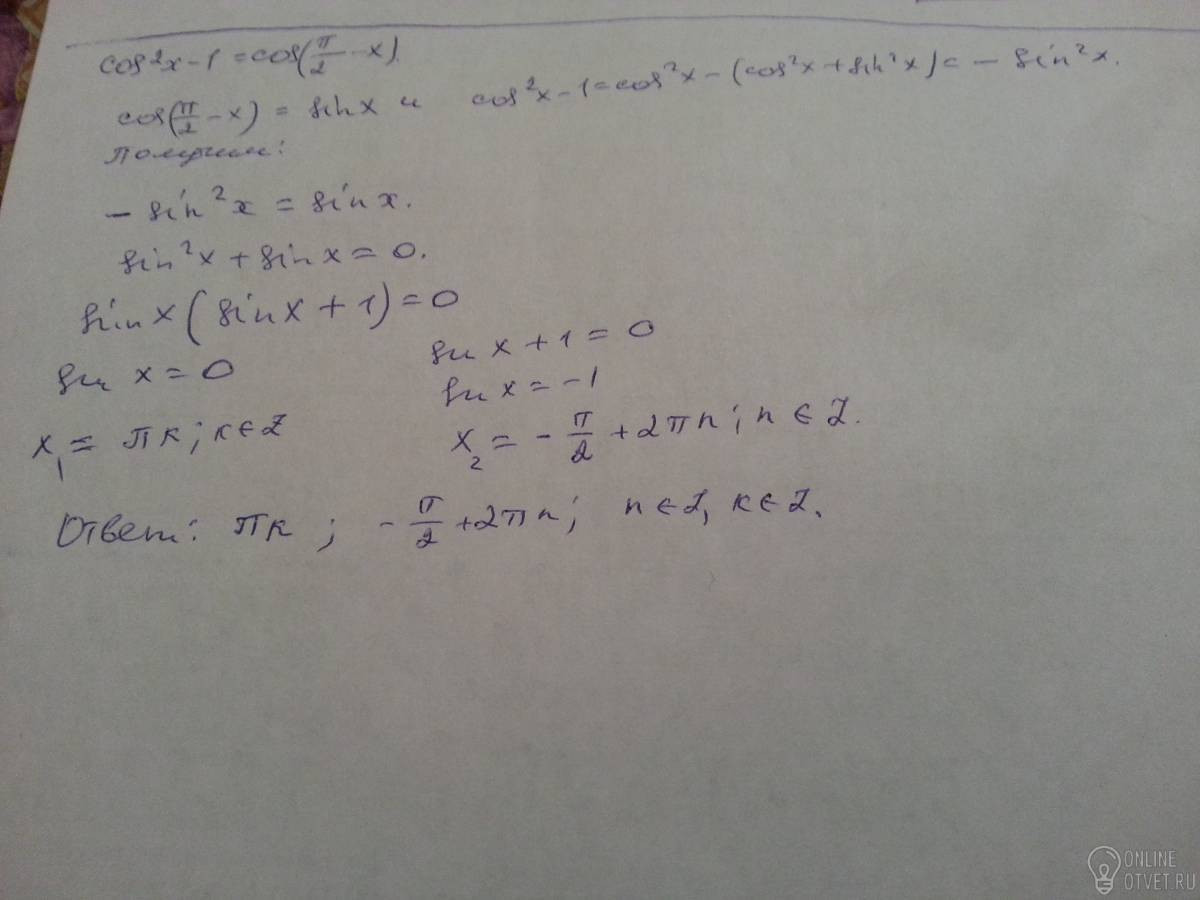 cos²x-1 = cos(π/2 - x).
cos(π/2 - x) = sin x и cos²x-1 = cos²x - (cos²x + sin²x) = - sin²x.
Получим:
- sin²x = sin x.
sin²x + sin x = 0.
sin x (sin x + 1) = 0
sin x = 0
sin x + 1 = 0
sin x = -1
x₁ = πк; к ∈ Z
x₂ = - π/2 + 2πn; n ∈ Z.
Ответ: πк; - π/2 + 2πn; n ∈ Z, к ∈ Z.
ONLINE
OTVET.RU